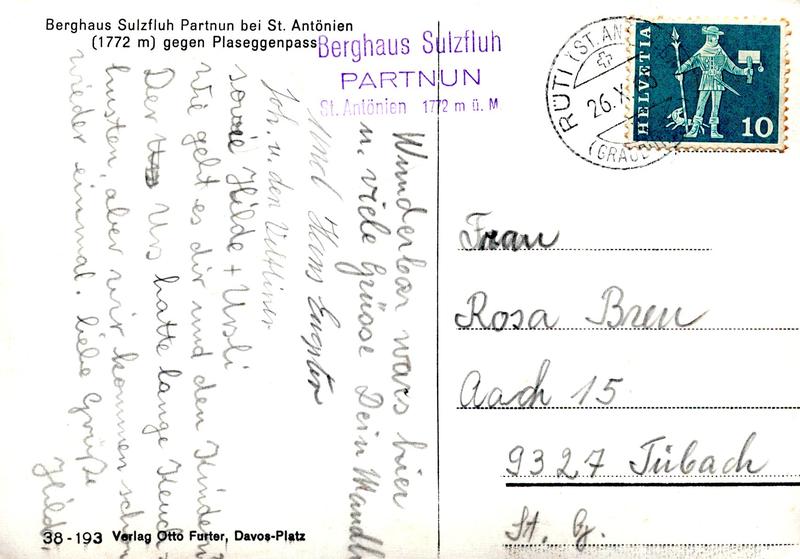 Berghaus Sulzfluh Partnun bei St. Antönien
(1772 m) gegen Plaseggenpass
Berghaus Sulzfluh
PARTNUN
St. Antönien 1772 m ü. M
RÜTI (ST. AN
26. X
(GRAUB
HELVETIA
10
Wunderbar wars hier
u. viele Grüsse Dein
und Hans
Joh. u. den
sowie Hilde + Ursli
Wie geht es dir und den Kindern
Der Urs hatte lange Keuch-
husten, aber wir kommen schon
wieder einmal. liebe Grüße
Hilde
Frau
Rosa Breu
Aach 15
9327 Tübach
St. G.
38-193 Verlag Otto Furter, Davos-Platz